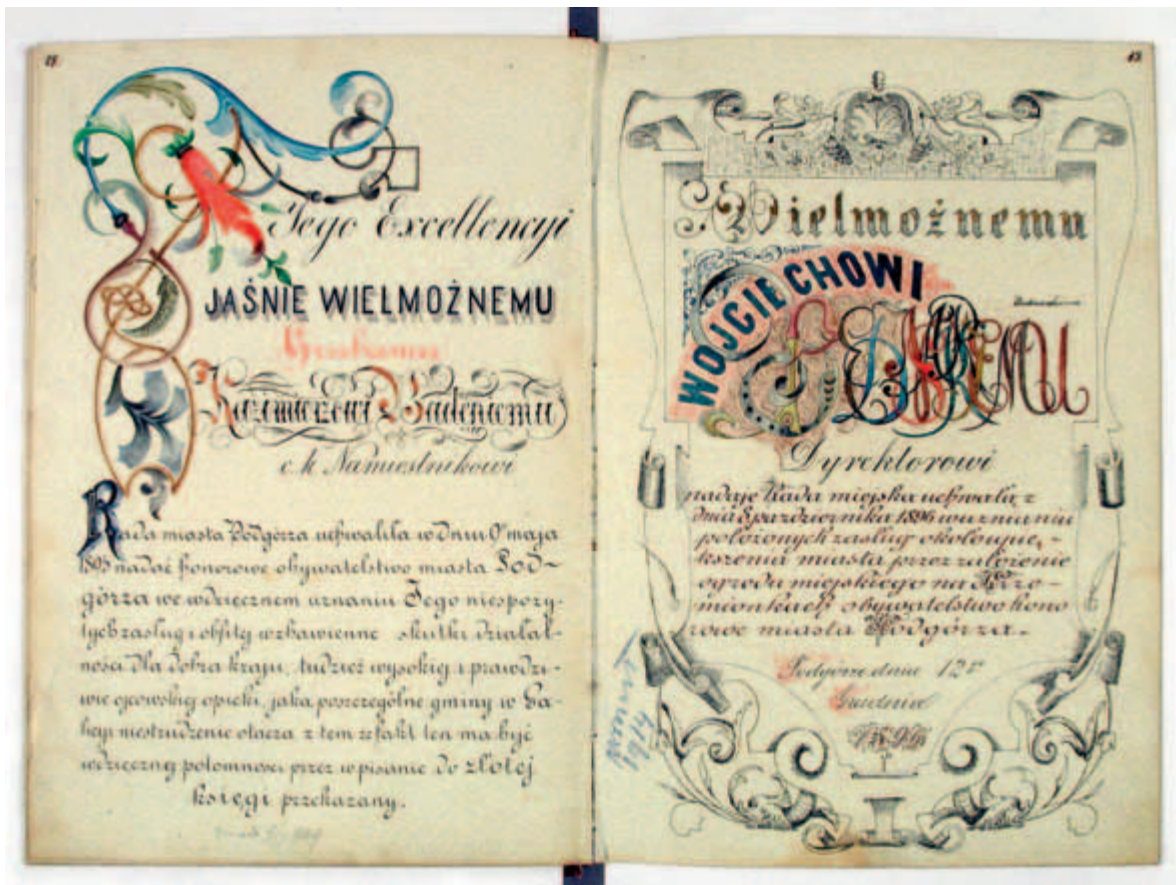 Jego Excellencyi
JAŚNIE WIELMOŻNEMU
Hrabiemu
Kazimierzowi Badeniemu
c. k. Namiestnikowi
Rada miasta Podgórza uchwaliła w dniu maja
1895 nadać honorowe obywatelstwo miasta Pod-
górza we wdzięcznem uznaniu Jego niespozy-
tych zasług i obfity w zbawienne skutki działal-
ności dla dobra kraju, tudzież wysokiej i prawdzi-
wie ojcowskiej opieki, jaką poszczególne gminy w Ga-
licyi niestrudzenie otacza z tem że fakt ten ma być
wdzięcznej potomności przez wpisanie do złotej
księgi przekazany.
Wielmożnemu
WOJCIECHOWI
BEDNARSKIEMU
Dyrektorowi
nadaje Rada miejska uchwałą z
dnia 8 października 1896 w uznaniu
położonych zasług około upię-
kszenia miasta przez założenie
ogrodu miejskiego na Krze-
mionkach obywatelstwo hono
rowe miasta Podgórza.
Podgórze dnia 12
Grudnia
1896